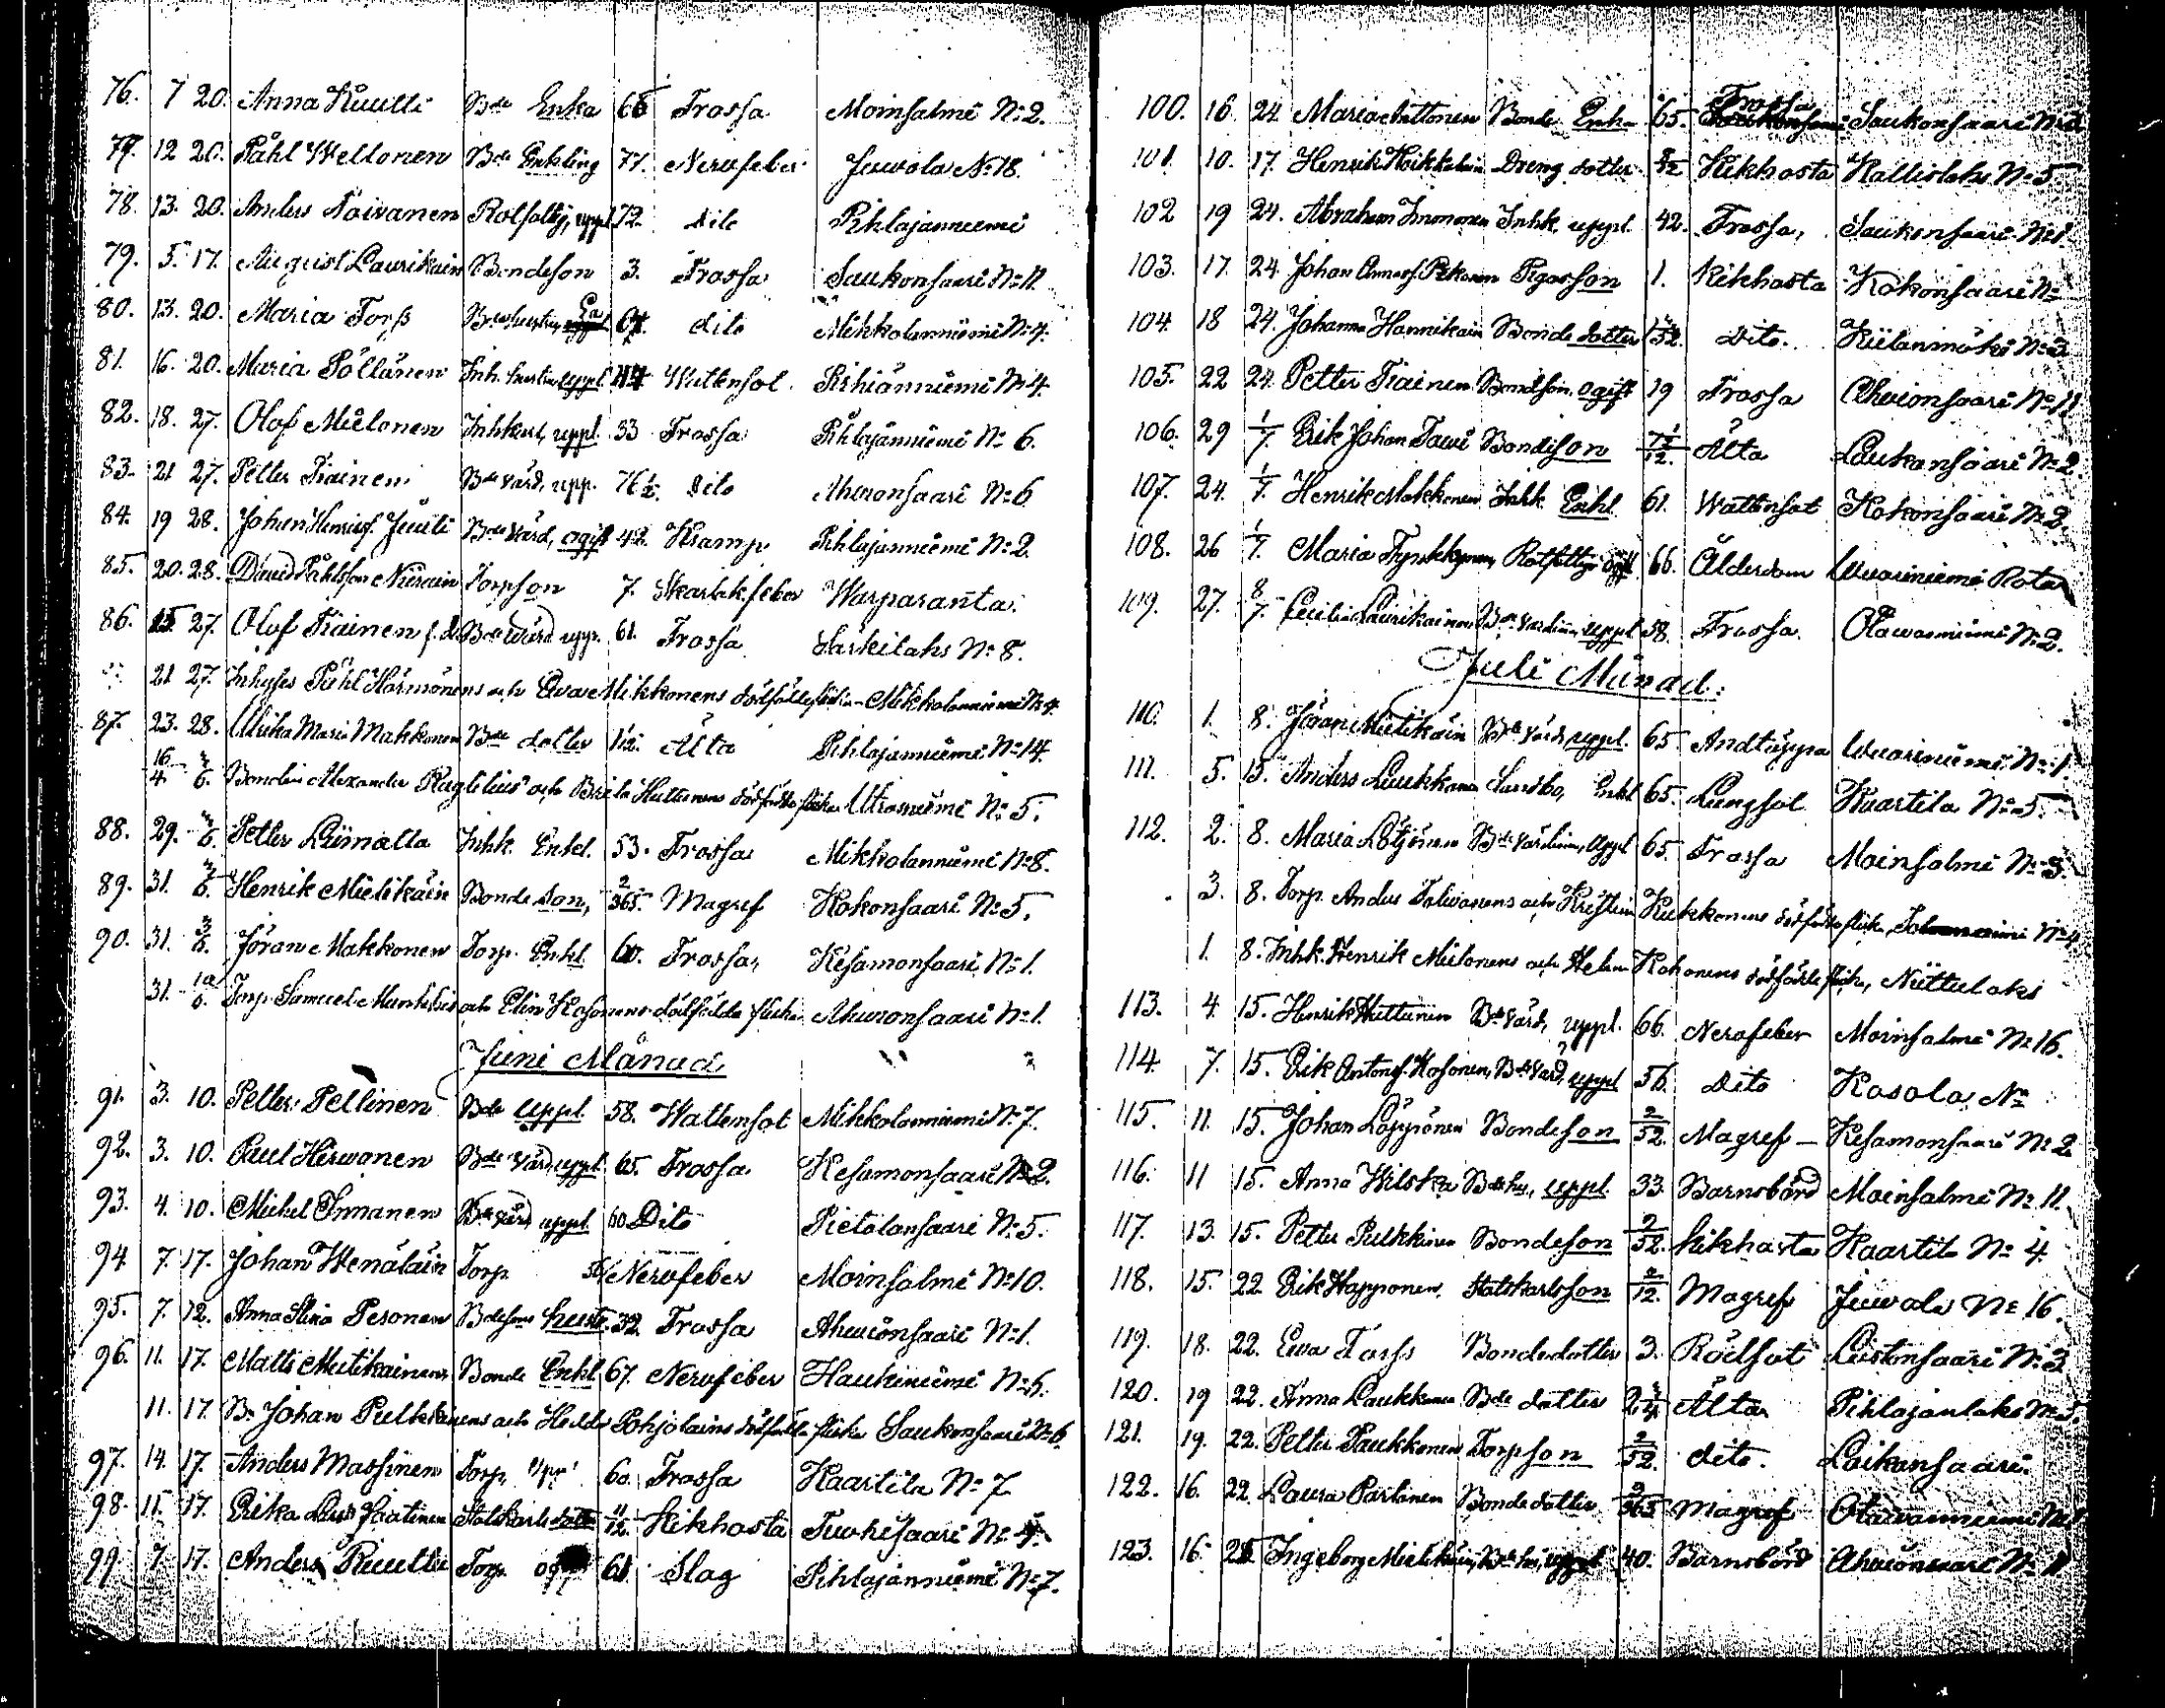 76. 7 20. Anna Ruutti Bde Enka 66 Frossa Moinsalmi No 2.
77. 12 20. Påhl Wellonen Bde Enkling 77. Nervfeber Juvola No 18.
78. 13. 20. Anders Toivanen Rotfattig, uppl 72. dito Pihlajanniemi
79. 5. 17. August Laurikain Bondeson 3. Frossa Saukonsaari No 11
80. 13. 20. Maria Torss 67. dito Mikkolanniemi No 4.
81. 16. 20. Maria Pöllänen Inh. hustru uppl 44 Wattensot. Pihlajänniemi No 4.
82. 18. 27. Olof Mielonen Inhkust, uppl. 33 Frossa Pihlajänniemi No 6.
83. 21 27. Petter Tiainen Bde värd, upp. 76 1/2. Dito Ahvionsaari No 6
84. 19 28. Johan Henriks. Juuti Bde värd, ogift 42. Kramp Pihlajanniemi No 2.
85. 20. 28. David Påhlsson Nurain Torpson 7. Skarlak.feber Warparanta.
86. 15 27. Olof Tiainen f.d. Bde Värd uppl. 61. Frossa Särkilaks No 8.
21 27. Inhyses Påhl Härmönens och Eva Mikkonens dödfödde flicka Mikkolanniemi No 4.
87. 23. 28. Ulrika Maria Makkonen Bde dotter 1/12. Ålta Pihlajanniemi No 14.
16/4. 3/6. Bonden Alexander och Brita Huttunens dödfödde flicka Utrasniemi No 5.
88. 29. 3/6. Petter Liimatta Inhk. Enkl. 53. Frossa Mikkolanniemi No 8.
89. 31. 3/6. Henrik Mielikäin Bonde son, 2/365. Magref Kokonsaari No 5.
90. 31. 3/6. Jöran Makkonen Torp. Enkl 60. Frossa, Kesamonsaari No 1.
31. 10/6. Torp. Samuel och Elin Kosonens dödfödde flicka Ahvionsaari No 1.
Juni Månad
91. 3. 10. Petter Pellinen Bde Uppl 58. Wattensot Mikkolanniemi No 7.
92. 3. 10. Paul Hirvonen Bde Värd, uppl. 65. Frossa Kesamonsaari No 2.
93. 4. 10. Michel Immonen Bde Värd, uppl 60. Dito Pietolansaari No 5.
94 7. 17. Johan Wenäläin Torp 56 Nervfeber Moinsalmi No 10.
95. 7. 12. Anna Stina Pesonen Bdesons hustr. 32. Frossa Ahvionsaari No 1.
96. 11. 17. Matts Mielikainen Bonde Enkl 67. Nervfeber Haukiniemi No 5.
11. 17. Bn Johan Pulkkinens och Hedda Pohjolains dödfödda flicka Saukonsaari No 6
97. 14. 17. Anders Massinen Torp. upp 60. Frossa Kaartila No 7
98. 11. 17. Erika Lovis Jaatinen Statskarls dotter 11/12. Kikhosta Tuohisaari No 4.
99. 7. 17. Anders Ruutti Torp 61 Slag Pihlajanniemi No 7.
100. 16 24. Maria Anttonen Bonde Enka 65. Frossa Saukonsaari No 2
101. 10. 17. Henrik Heikkelin Dreng dotter 5/12 Kikhosta Kallislaks No 5
102 19 24. Abraham Immonen Inhk. uppl. 42. Frossa, Saukonsaari No 1
103. 17. 24 Johan Annas. Pekonen Pigasson 1. Kikhosta Kokonsaari No
104. 18 24. Johanna Hannikain Bonde dotter /52. Dito. Kiilanmäki No 3
105. 22 24. Petter Tiainen Bondeson, ogift 19 Frossa Ahvionsaari No 11
106. 29 1/7. Erik Johan Tawi Bondeson /12. Ålta Laukansaari No 2.
107. 24. 1/7. Henrik Makkonen Inhk. Enkl 61. Wattensot Kokonsaari No 2.
108. 26 1/7. Maria Tynkkynen, Rotfattige ogift 66. Ålderdom Wuoriniemi Rota
109. 27. 8/7. Cecilia Laurikainen Bde Värdinna, uppl 58. Frossa. Otawaniemi No 2.
Juli Månad.
110. 1. 8. Jöran Mielikäin Bde Värd, uppl. 65. Andtäppa Wuoriniemi No 1.
111. 5. 15. Anders Luukkanen Landbo, Enkl 65. Lungsot Kaartila No 5.
112. 2. 8. Maria Lötjönen Bde Värdinna, uppl 65. Frossa Moinsalmi No 3.
3. 8. Torp. Anders Tolvanens och Kristin Kukkonens dödfödda flicka No 4
1. 8. Inhk. Henrik Mielonens och Helena Kohonens dödfödde flicka, Niittulaks
113. 4 15. Henrik Huttunen Bde Värd, uppl. 66. Nervfeber Moinsalmi No 16.
114. 7. 15. Erik Antons. Kosonen, Bde Värd, uppl 56. Dito Kosola No
115. 11. 15. Johan Läppönen Bondeson 2/52. Magref Kesamonsaari No 2
116. 11 15. Anna Wilska Bdehu, uppl. 33. Barnsbörd Moinsalmi No 11.
117. 13. 15. Petter Pulkkinen Bondeson 2/52. Kikhosta Kaartila No 4.
118. 15. 22. Erik Happonen Statskarlsson 2/12. Magref Juvola No 16.
119. 18. 22. Eva Torss Bondedotter 3. Rödsot Liistonsaari No 3
120. 19 22. Anna Laukkanen Bde dotter Ålta Pihlajanlaks No 5.
121. 19. 22. Petter Paukkonen Torpson 2/52. dito. Loikansaari.
122. 16. 22. Laura Partanen Bonde dotter 2/365 Magref Otawanniemi No 1
123. 16. 25 Ingeborg Mielikäin, Bde hu, uppl 40. Barnsbörd Ahvionsaari No 11